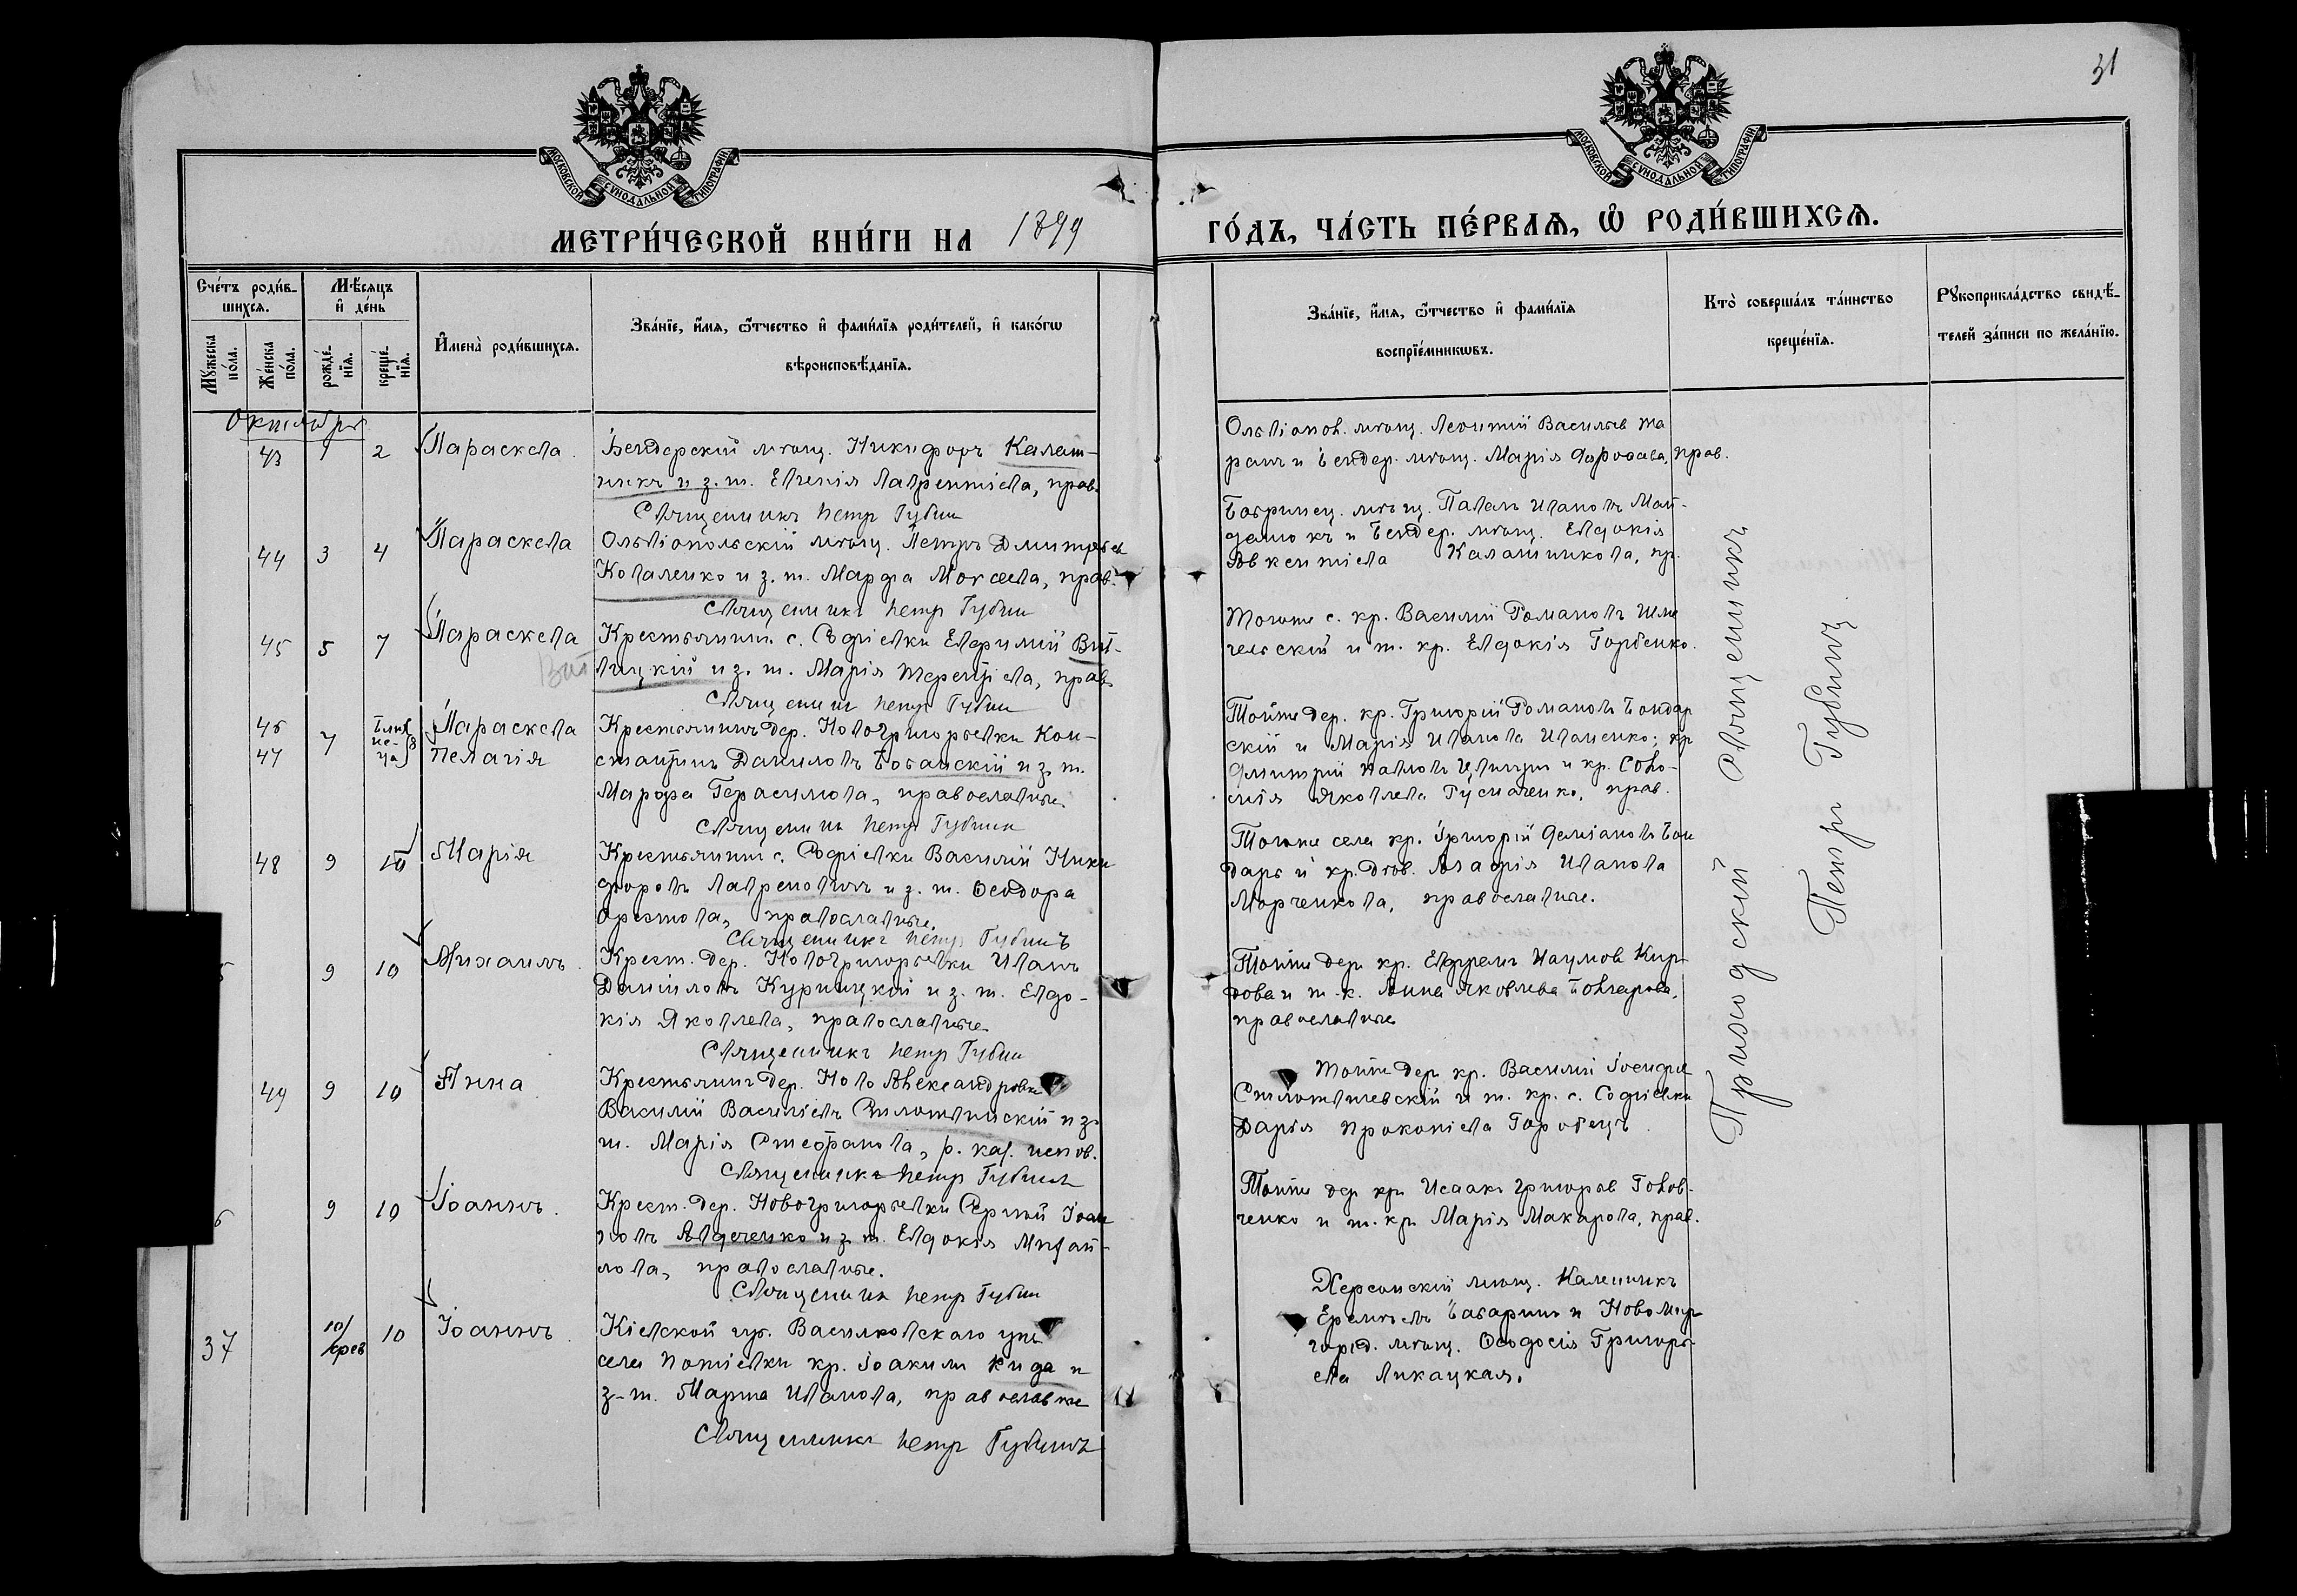 31
МОСКОВСКОЙ СѴНОДАЛЬНОЙ ТИПОГРАФІИ
МОСКОВСКОЙ СѴНОДАЛЬНОЙ ТИПОГРАФІИ
МЕТРИ́ЧЕСКОЙ КНИ́ГИ НА 1899
ГО́ДЪ, ЧА́СТЬ ПЕ́РВАѦ, Ѡ҆ РОДИ́ВШИХСѦ.
Сче́тъ роди́в-
шихсѧ.
Мꙋ́жеска по́ла.
Же́нска по́ла.
Мѣ́сяцъ и҆ де́нь
рожде́-нїѧ.
креще́-нїѧ.
И҆мена̀ роди́вшихсѧ.
Зва́нїе, и҆́мѧ, ѻ҆́тчество и҆ фами́лїѧ роди́телей, и҆ како́гѡ
вѣроисповѣ́данїѧ.
Зва́нїе, и҆́мѧ, ѻ҆́тчество и҆ фами́лїѧ
воспрїе́мникѡвъ.
Кто̀ соверша́лъ та́инство
креще́нїѧ.
Рꙋкоприкла́дство свидѣ́-
телей за́писи по жела́нїю.
Октябрь
43 1 2 Параскева. Бендерскій мѣщ. Никифоръ Калаш-
никъ и з. ж. Евгенія Лаврентіева, прав.
Священникъ Петр Губин
Ольвіопол. мѣщ. Леонтій Васильев
и Бендер. мѣщ. Марія прав.
44 3 4 Параскева Ольвіопольскій мѣщ. Петръ Дмитріев
Коваленко и з. ж. Марфа Моисеева, прав.
Священникъ Петр Губин
Бобринец. мѣщ. Павелъ Ивановъ Май-
данюкъ и Бендер. мѣщ. Евдокія
Калашникова, пр.
45 5 7 Параскева Крестьянинъ с. Софіевки Евфимій Вит-
вицкій и з. ж. Марія Терентіева, прав.
Священникъ Петр Губин
Тогоже с. кр. Василій Романовъ
и ж. кр. Евдокія Горбенко.
46 7 Близнеца 8 Параскева
47 Пелагія
Крестьянинъ дер. Новогригорьевки Кон-
стантинъ Даниловъ и з. ж.
Марфа Герасимова, православные.
Священникъ Петр Губин
Тойже дер. кр. Григорій Романовъ Бондар
скій и Марія Иванова Иваненко; кр.
Дмитрій Павловъ и кр. Софо-
нія Яковлева прав.
48 9 10 Марія Крестьянинъ с. Софіевки Василій Ники
форовъ Лавреновичъ и з. ж. Ѳеодора
православные.
Священникъ Петр Губинъ
Тогоже села кр. Григорій Деміановъ Бон
дарь и кр. дѣв. Агафія Иванова
Марченкова, православные.
9 10 Михаилъ. Крест. дер. Новогригорьевки Иванъ
Даниловъ Курницкій и з. ж. Евдо-
кія Яковлева, православные.
Священникъ Петр Губин
Тойже дер. кр. Ефремъ Наумов
и ж. к. Анна Яковлева
православные
49 9 10 Анна Крестьянинъ дер. Ново Александровки
Василій Василіевъ и з.
ж. Марія Стефанова, р. каѳ. испов.
Священникъ Петр Губинъ
Тойже дер. кр. Василій
и ж. кр. с. Софіевки
Дарія Прокопіева Горобецъ.
9 10 Іоаннъ. Крест. дер. Новогригорьевки Сергій Іоан
новъ Авдеенко и з. ж. Евдокія Михай-
лова, православные.
Священникъ Петр Губин
Тойже дер. кр. Исаакъ Григорьев
и ж. кр. Марія Макарова, прав.
37 10 10 Іоаннъ. Кіевской губ. Васильковскаго уѣз
села Потіевки кр. Іоакимъ Кида и
з. ж. Марѳа Иванова, православные
Священникъ Петр Губинъ
Херсонскій мѣщ. Калинникъ
и Новомир-
город. мѣщ. Ѳеодосія Григорь-
ева Ликацкая.
Приходскій Священникъ
Петръ Губинъ